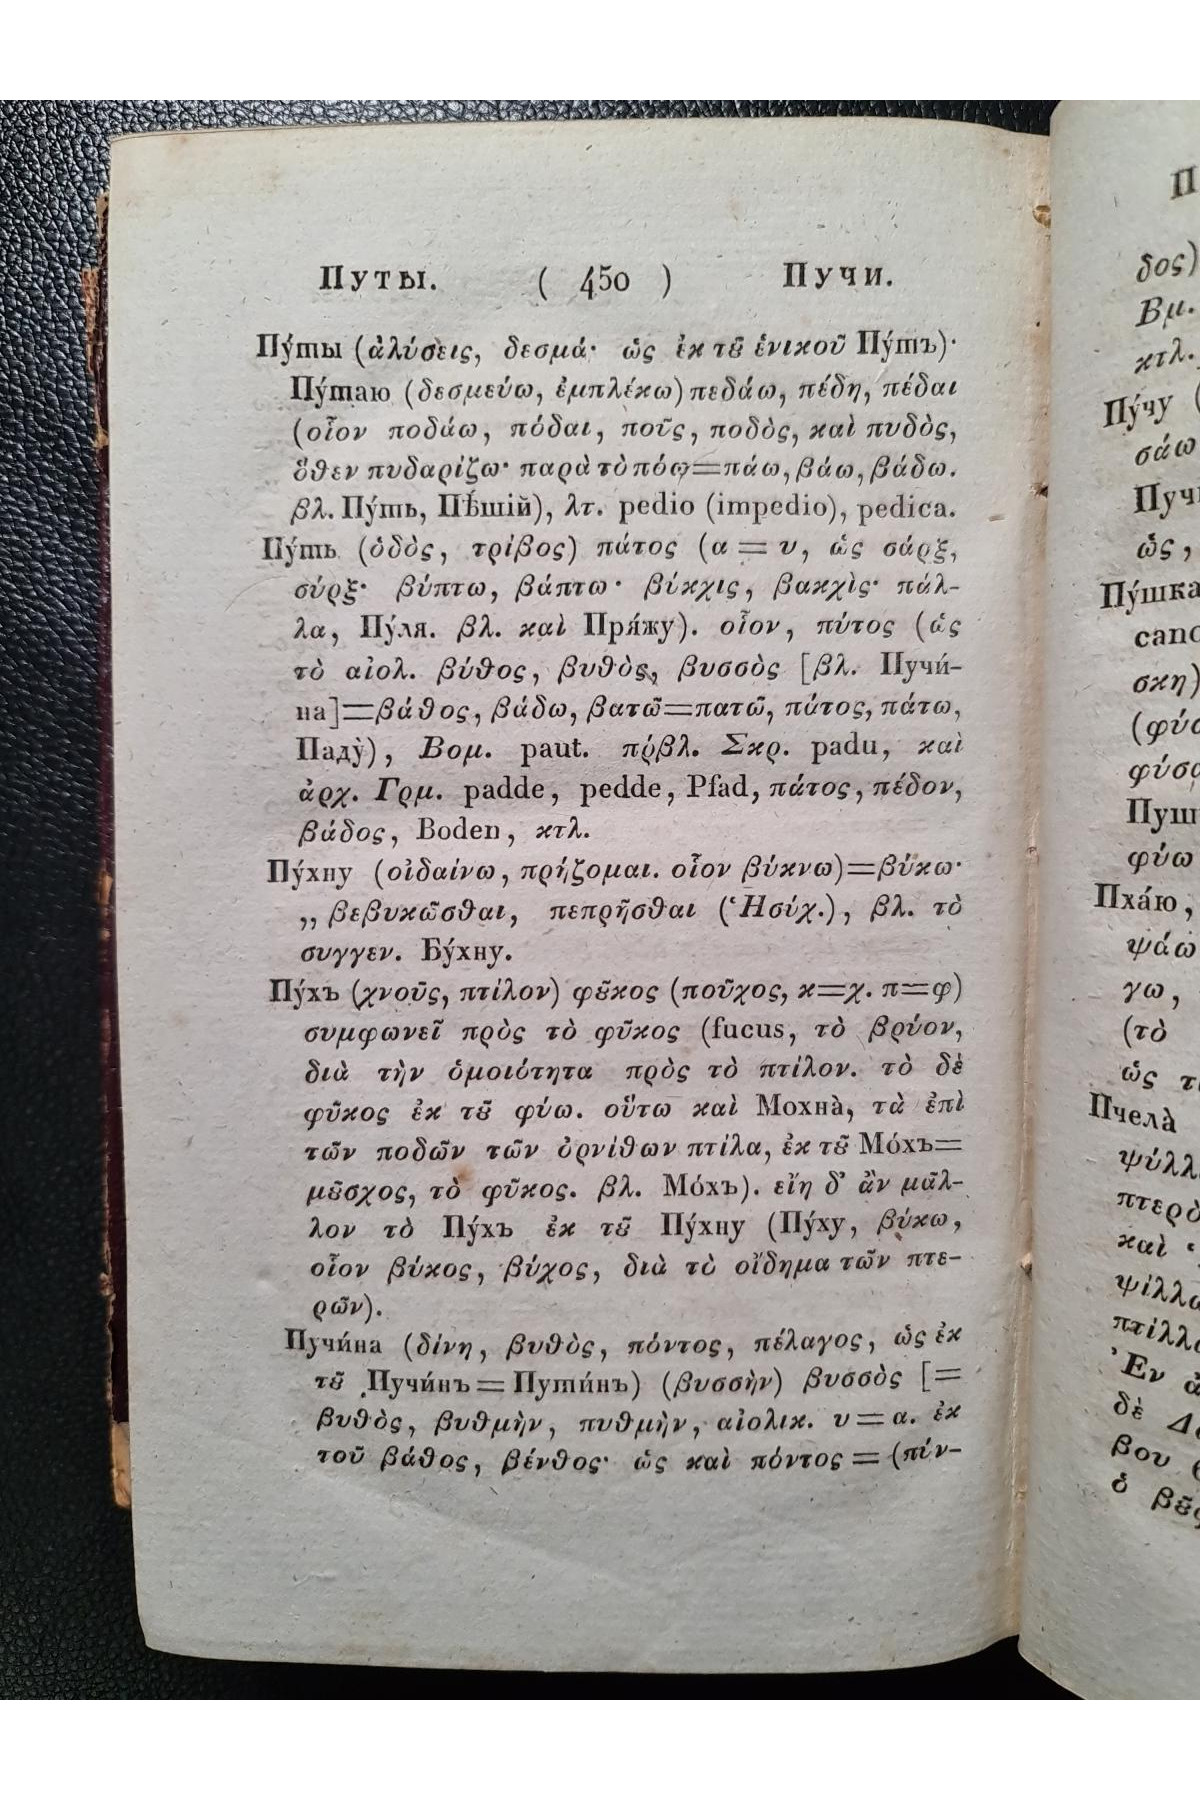 ПУТЫ. ( 450 ) ПУЧИ.
Пу́ты (ἀλύσεις, δεσμά· ὡς ἐκ τȣ͂ ἑνικοῦ Пу́тъ)·
Пу́таю (δεσμεύω, ἐμπλέκω) πεδάω, πέδη, πέδαι
(οἷον ποδάω, πόδαι, ποῦς, ποδὸς, καὶ πυδὸς,
ὅθεν πυδαρίζω· παρὰ τὸ πόω=πάω, βάω, βάδω.
βλ. Пу́ть, Пѣ́шій), λτ. pedio (impedio), pedica.
Пу́ть (ὁδὸς, τρίβος) πάτος (α = υ, ὡς σάρξ,
σύρξ· βύπτω, βάπτω· βύκχις, βακχὶς· πάλ-
λα, Пу́ля. βλ. καὶ Пря́жу). οἷον, πύτος (ὡς
τὸ αἰολ. βύθος, βυθὸς, βυσσὸς [βλ. Пучи́-
на]=βάθος, βάδω, βατῶ=πατῶ, πάτος, πάτω,
Паду̀), Βομ. paut. πρβλ. Σκρ. padu, καὶ
ἀρχ. Γρμ. padde, pedde, Pfad, πάτος, πέδον,
βάδος, Boden, κτλ.
Пу́хну (οἰδαίνω, πρήζομαι. οἷον βύκνω)=βύκω·
„ βεβυκῶσθαι, πεπρῆσθαι (Ἡσύχ.), βλ. τὸ
συγγεν. Бу́хну.
Пу́хъ (χνοῦς, πτίλον) φȣ͂κος (ποῦχος, κ=χ. π=φ)
συμφωνεῖ πρὸς τὸ φῦκος (fucus, τὸ βρύον,
διὰ τὴν ὁμοιότητα πρὸς τὸ πτίλον. τὸ δὲ
φῦκος ἐκ τȣ͂ φύω. οὕτω καὶ Мохна̀, τὰ ἐπὶ
τῶν ποδῶν τῶν ὀρνίθων πτίλα, ἐκ τȣ͂ Мо́хъ=
μȣ͂σχος, τὸ φῦκος. βλ. Мо́хъ). εἴη δ' ἂν μᾶλ-
λον τὸ Пу́хъ ἐκ τȣ͂ Пу́хну (Пу́ху, βύκω,
οἷον βύκος, βύχος, διὰ τὸ οἴδημα τῶν πτε-
ρῶν).
Пучи́на (δίνη, βυθὸς, πόντος, πέλαγος, ὡς ἐκ
τȣ͂ Пучи́нъ=Пути́нъ) (βυσσὴν) βυσσὸς [=
βυθὸς, βυθμὴν, πυθμὴν, αἰολικ. υ=α. ἐκ
τοῦ βάθος, βένθος· ὡς καὶ πόντος = (πίν-
П
δος)
Βμ.
κτλ.
Пу́чу (
σάω
Пучи
ὡς,
Пу́шка
cano
σκη)
(φύσ
φύσα
Пуш
φύω
Пха́ю,
ψάω
γω,
(τὸ
ὡς τ
Пчела̀
ψύλλ
πτερὸ
καὶ
ψίλλω
πτίλλο
Ἐν
δὲ
βου
ὁ